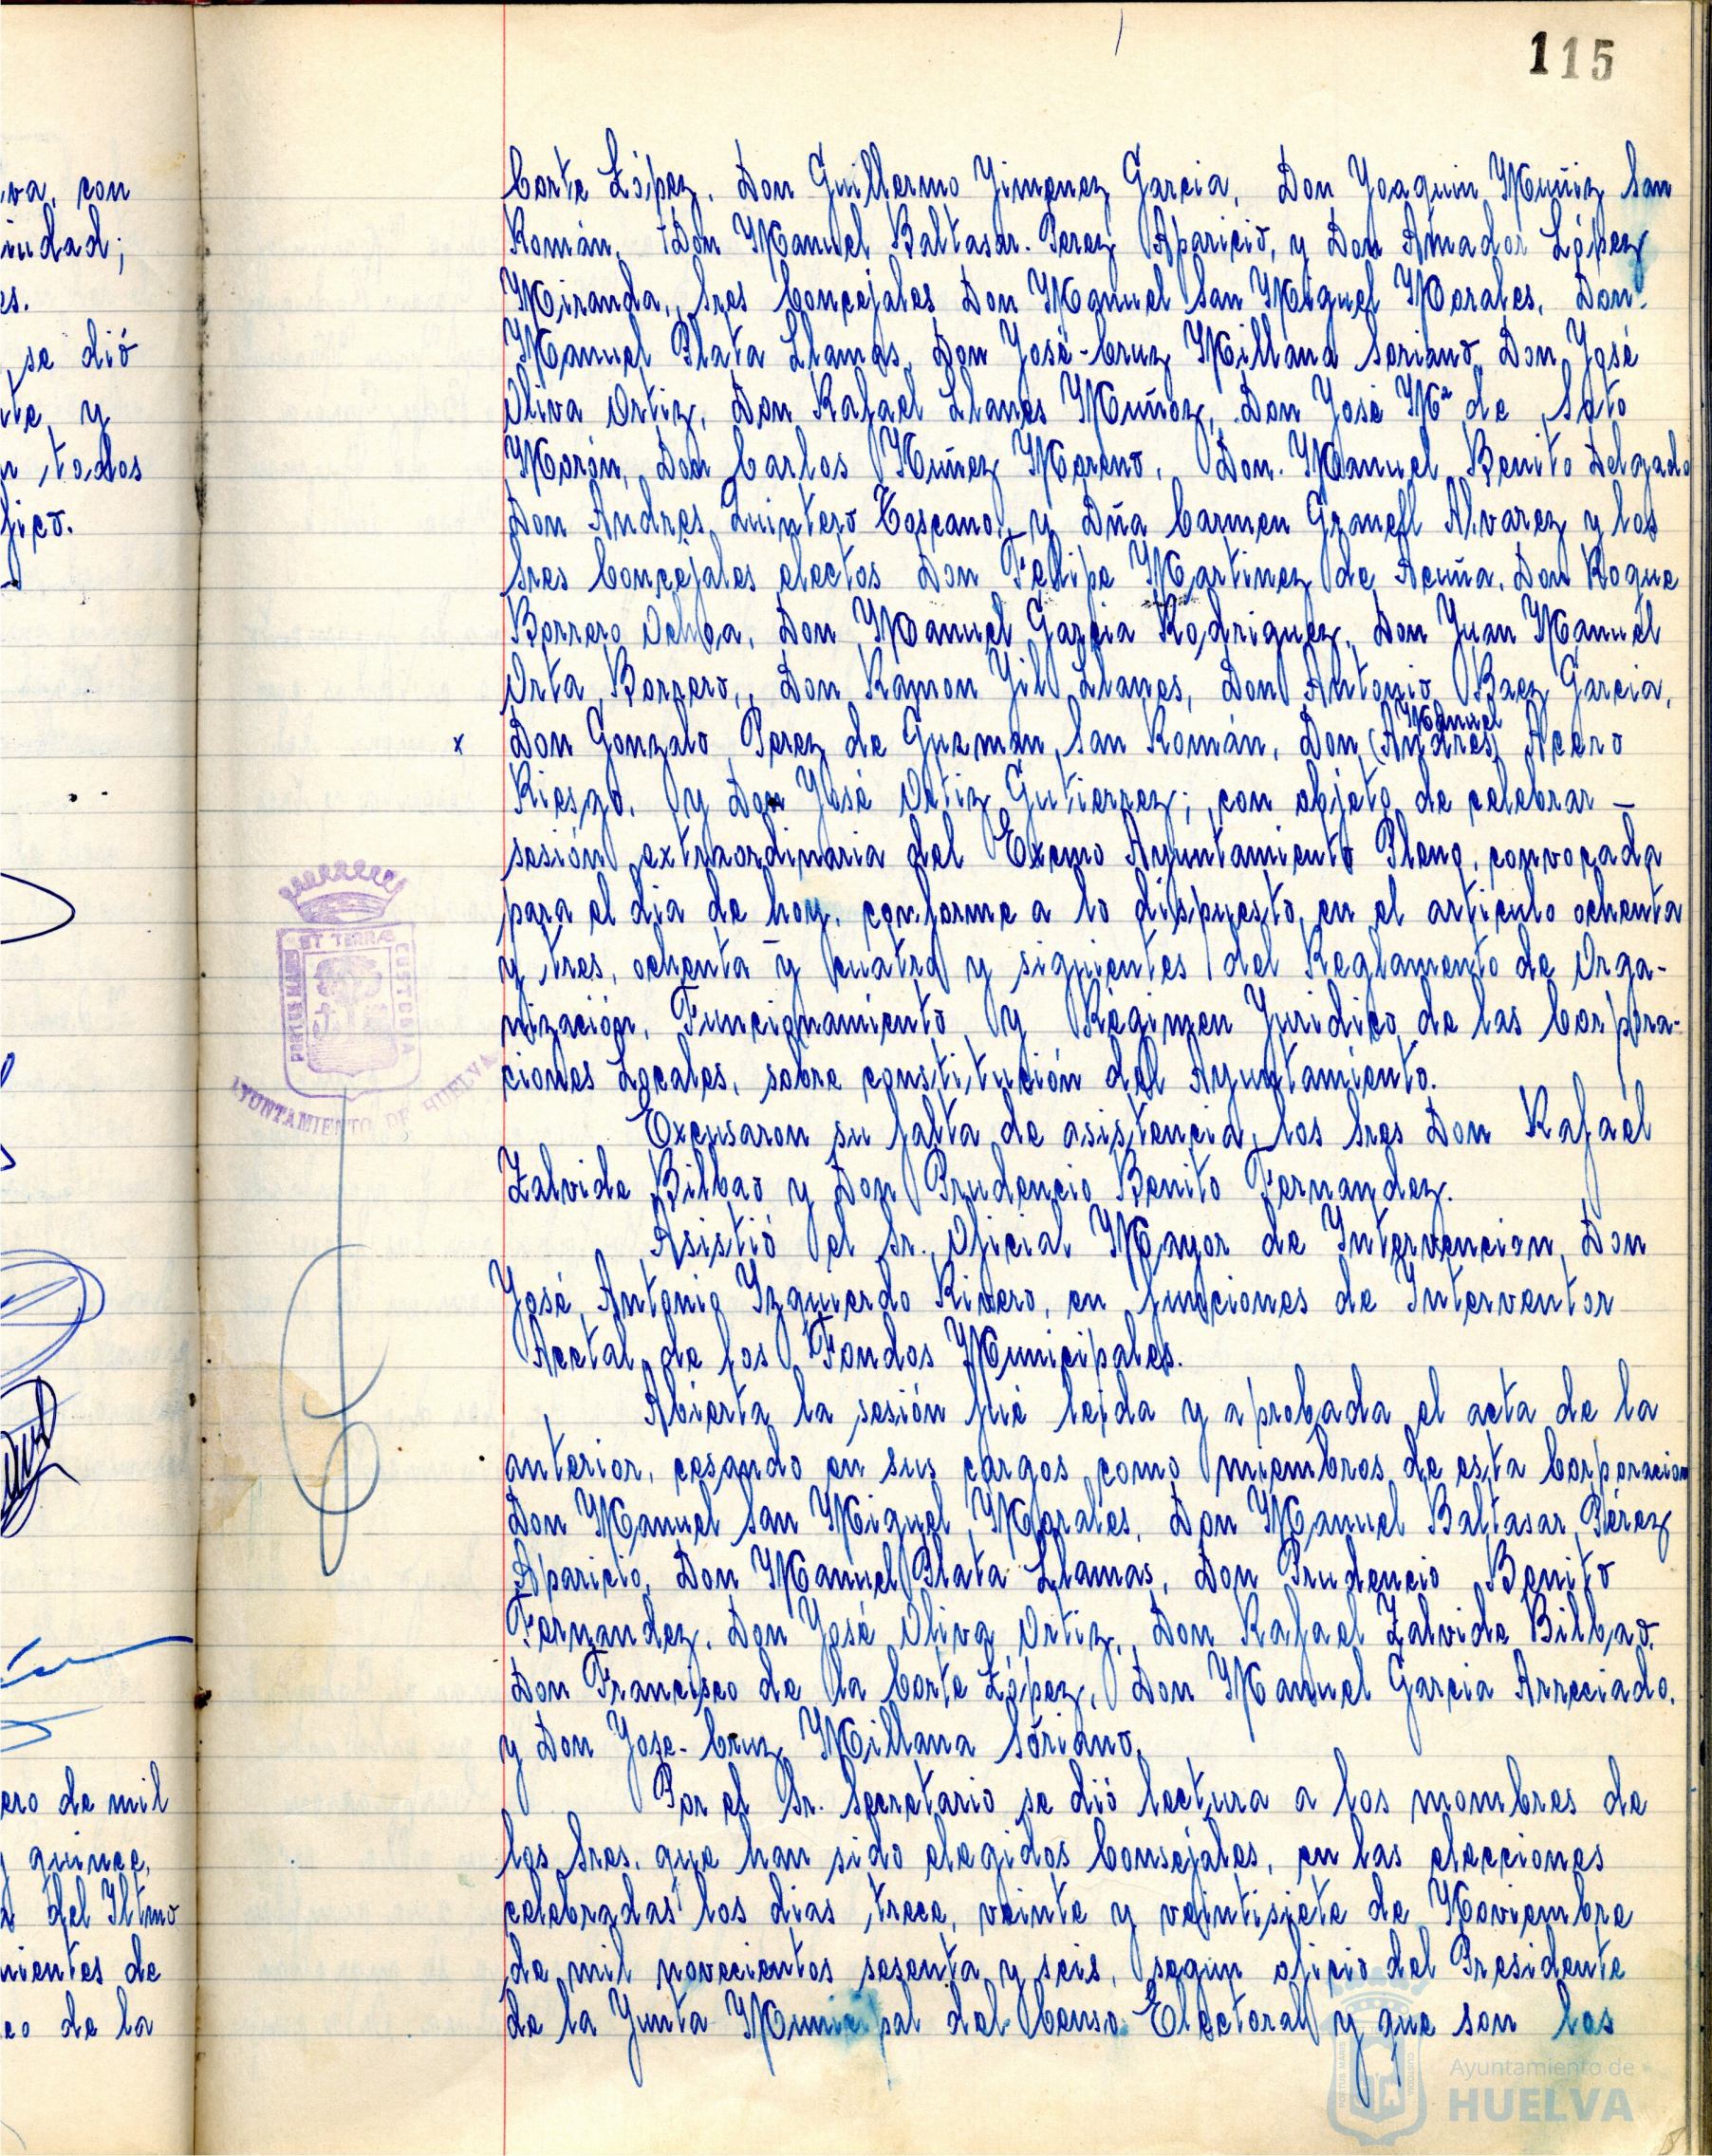 115
va, con
iudad;
es.
se dió
nte, y
n todos
fico.
ero de mil
y quince,
del Iltmo
nientes de
eo de la
Corte López, Don Guillermo Jimenez Garcia, Don Joaquin Muñiz San
Román, Don Manuel Baltasar Perez Aparicio, y Don Amador López
Miranda, Sres Concejales Don Manuel San Miguel Morales, Don
Manuel Plata Llamas, Don José-Cruz Millana Soriano, Don José
Oliva Ortiz, Don Rafael Llanes Muñoz, Don José Mª de Soto
Morón, Don Carlos Núñez Moreno, Don Manuel Benito Delgado
Don Andres Quintero Toscano, y Dña Carmen Granell Alvarez y los
Sres Concejales electos Don Felipe Martinez de Acuña, Don Roque
Borrero Ochoa, Don Manuel Garcia Rodriguez, Don Juan Manuel
Orta Borrero, Don Ramon Jil Llanes, Don Antonio Baez Garcia,
Manuel
x Don Gonzalo Perez de Guzman San Román, Don (Andres) Acero
Riesgo, y Don José Ortiz Gutierrez; con objeto de celebrar –
sesión extraordinaria del Excmo Ayuntamiento Pleno, convocada
para el dia de hoy, conforme a lo dispuesto en el articulo ochenta
y tres, ochenta y cuatro y siguientes del Reglamento de Orga-
nización, Funcionamiento y Régimen Juridico de las Corpora-
ciones Locales, sobre constitución del Ayuntamiento.
Excusaron su falta de asistencia, los Sres Don Rafael
Zalvide Bilbao y Don Prudencio Benito Fernandez.
Asistió el Sr. Oficial Mayor de Intervencion, Don
José Antonio Izquierdo Rivero, en funciones de Interventor
Acctal de los Fondos Municipales.
Abierta la sesión fué leida y aprobada el acta de la
anterior, cesando en sus cargos como miembros de esta Corporacion
Don Manuel San Miguel Morales, Don Manuel Baltasar Pérez
Aparicio, Don Manuel Plata Llamas, Don Prudencio Benito
Fernandez, Don José Oliva Ortiz, Don Rafael Zalvide Bilbao,
Don Francisco de la Corte López, Don Manuel Garcia Arreciado,
y Don Jose-Cruz Millana Soriano.
Por el Sr. Secretario se dió lectura a los nombres de
los Sres. que han sido elegidos Consejales, en las elecciones
celebradas los dias trece, veinte y veintisiete de Noviembre
de mil novecientos sesenta y seis, segun oficio del Presidente
de la Junta Municipal del Censo Electoral y que son los
PORTUS MARIS ET TERRÆ CUSTODIA
AYUNTAMIENTO DE HUELVA
Ayuntamiento de
HUELVA